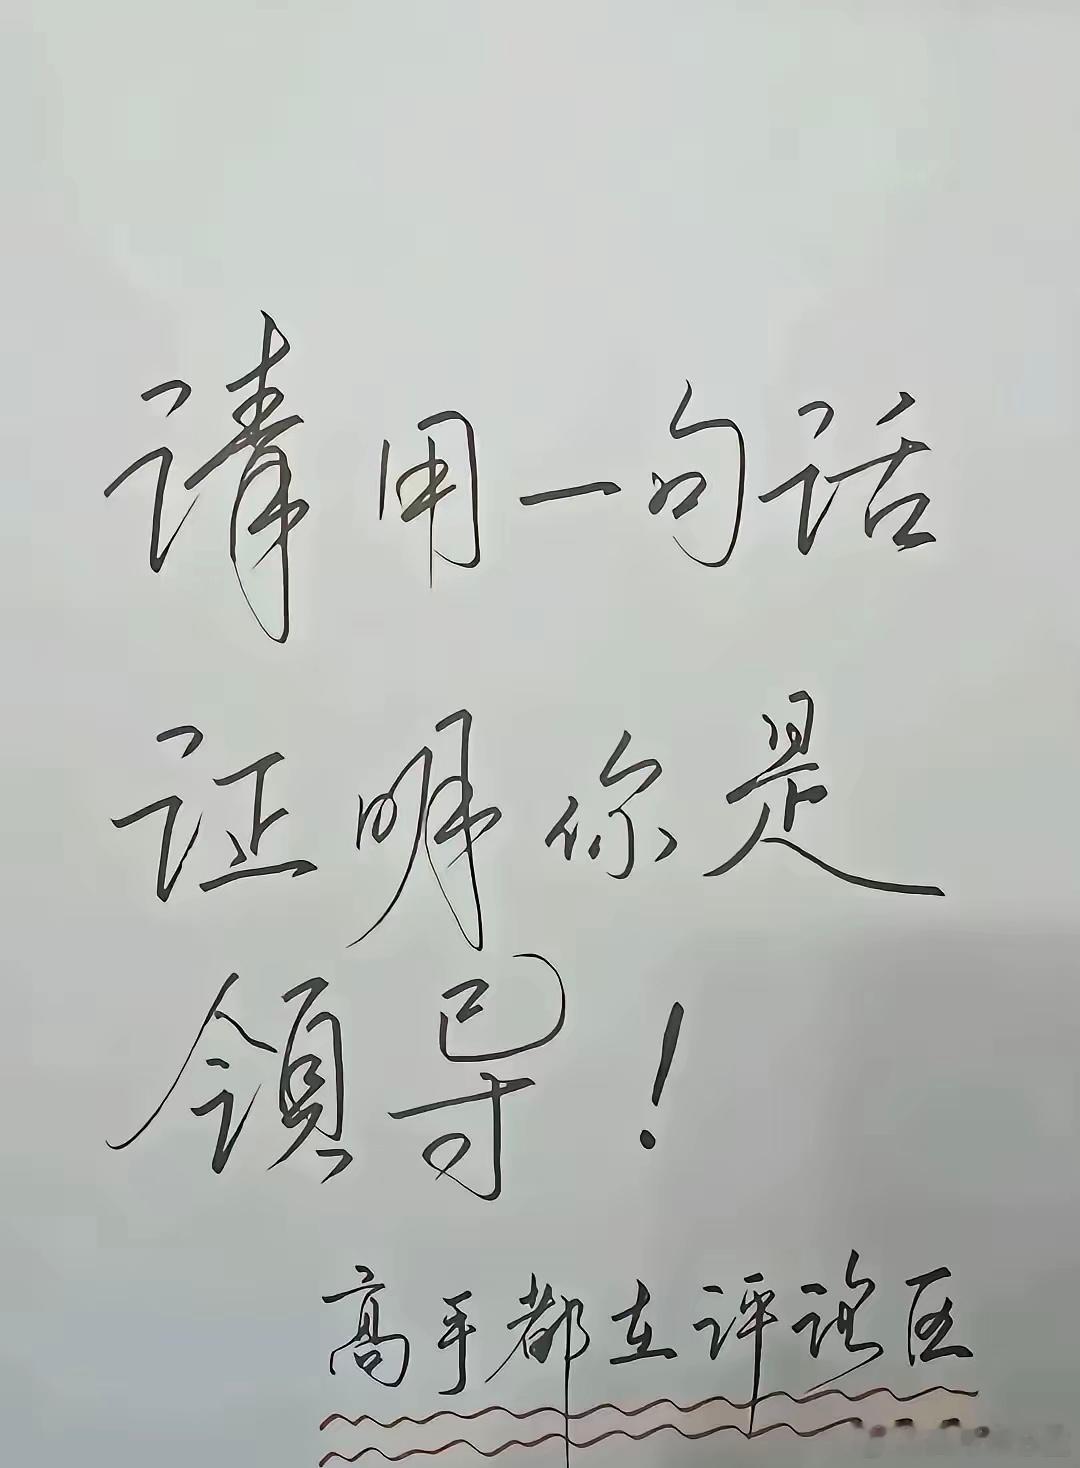 请用一句话
证明你是
领导!
高手都在评论区